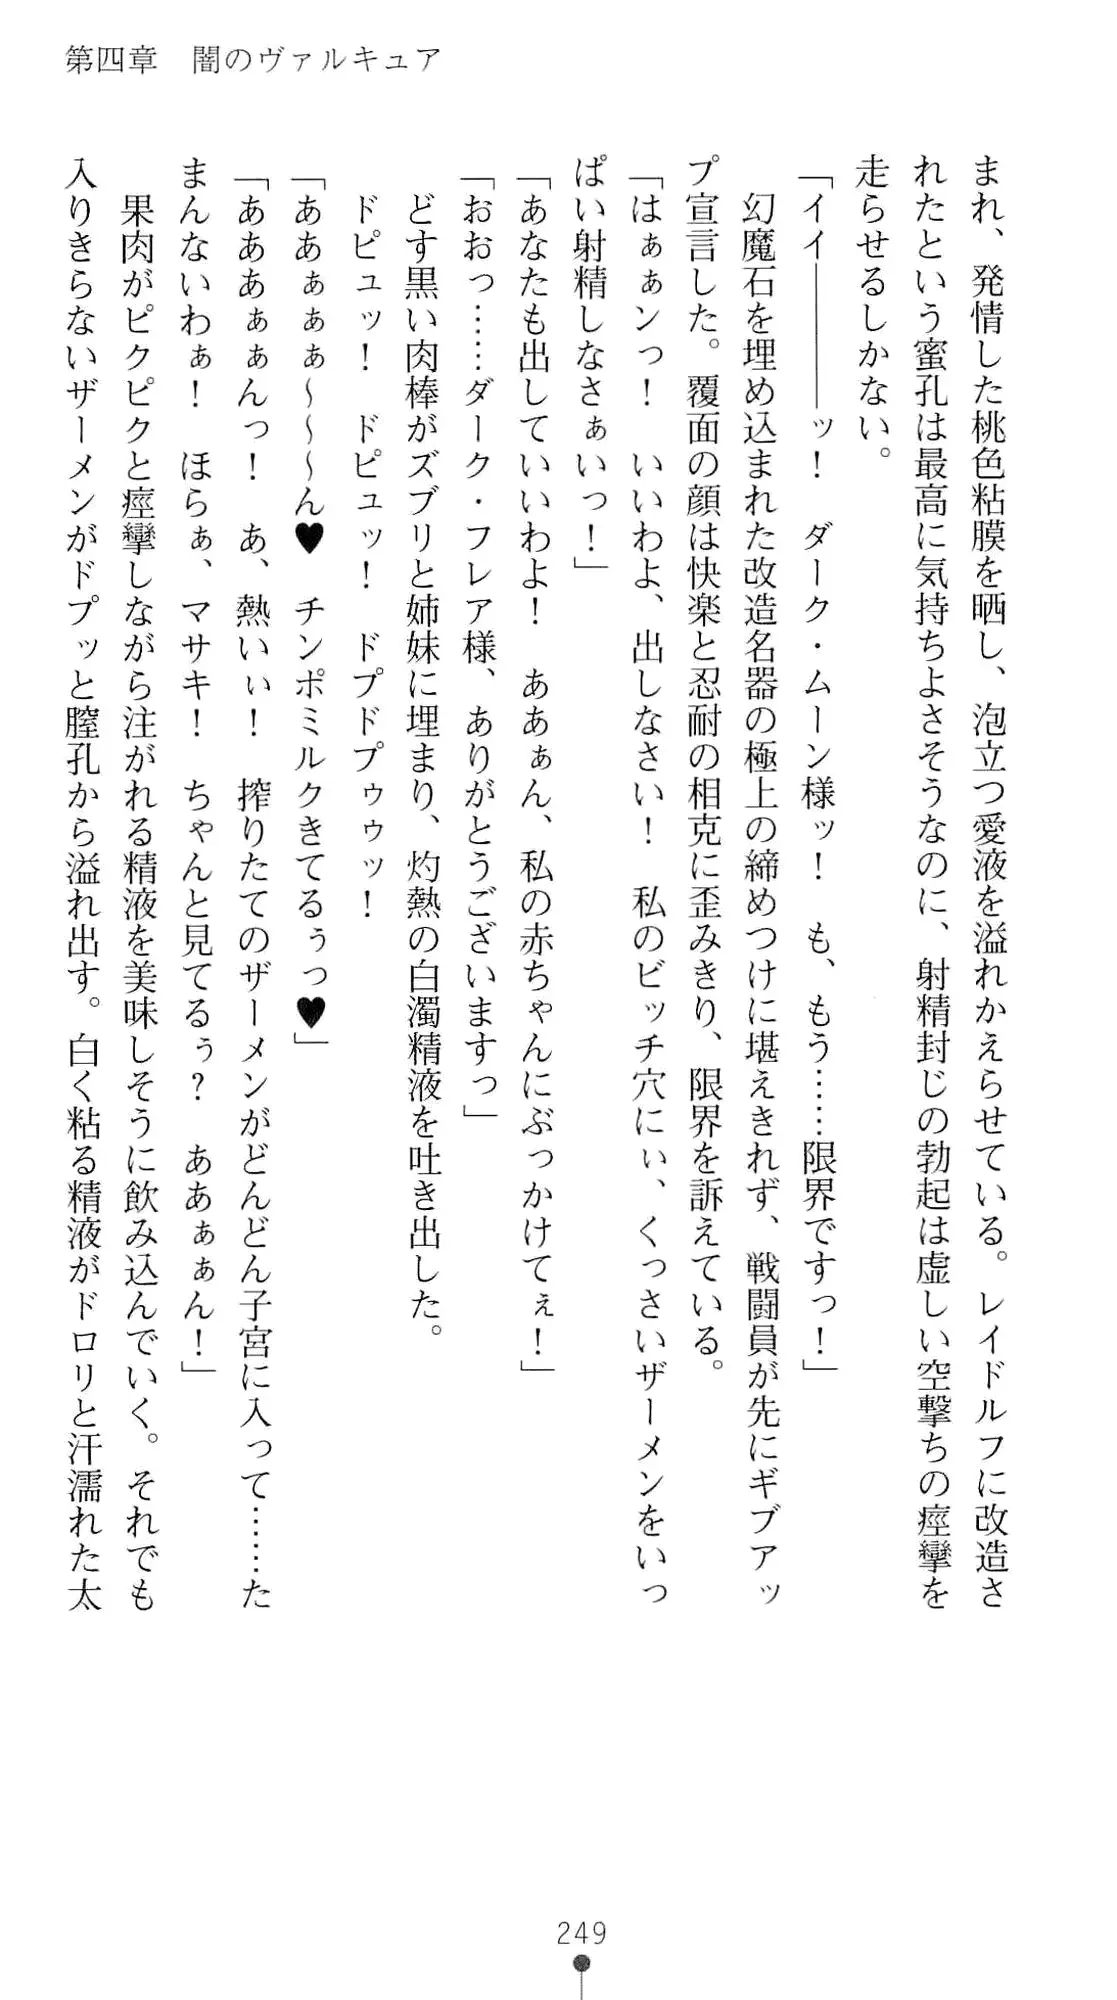 第四章　闇のヴァルキュア
まれ、発情した桃色粘膜を晒し、泡立つ愛液を溢れかえらせている。レイドルフに改造さ
れたという蜜孔は最高に気持ちよさそうなのに、射精封じの勃起は虚しい空撃ちの痙攣を
走らせるしかない。
「イイ――――ッ！　ダーク・ムーン様ッ！　も、もう……限界ですっ！」
　幻魔石を埋め込まれた改造名器の極上の締めつけに堪えきれず、戦闘員が先にギブアッ
プ宣言した。覆面の顔は快楽と忍耐の相克に歪みきり、限界を訴えている。
「はぁぁンっ！　いいわよ、出しなさい！　私のビッチ穴にぃ、くっさいザーメンをいっ
ぱい射精しなさぁいっ！」
「あなたも出していいわよ！　ああぁん、私の赤ちゃんにぶっかけてぇ！」
「おおっ……ダーク・フレア様、ありがとうございますっ」
　どす黒い肉棒がズブリと姉妹に埋まり、灼熱の白濁精液を吐き出した。
　ドピュッ！　ドピュッ！　ドプドプゥゥッ！
「ああぁぁぁ～～～ん♥　チンポミルクきてるぅっ♥」
「あああぁぁんっ！　あ、熱いぃ！　搾りたてのザーメンがどんどん子宮に入って……た
まんないわぁ！　ほらぁ、マサキ！　ちゃんと見てるぅ？　ああぁぁん！」
　果肉がピクピクと痙攣しながら注がれる精液を美味しそうに飲み込んでいく。それでも
入りきらないザーメンがドプッと膣孔から溢れ出す。白く粘る精液がドロリと汗濡れた太
249